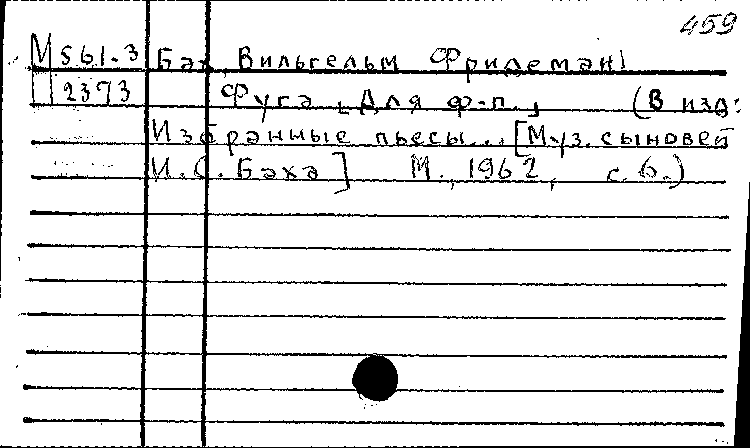 459
М 561.3 Бах, Вильгельм Фридеман
2373 Фуга [Для ф-п.] (В изд:
Избранные пьесы... [Муз. сыновей
И.С. Баха] М., 1962, с. 6.)